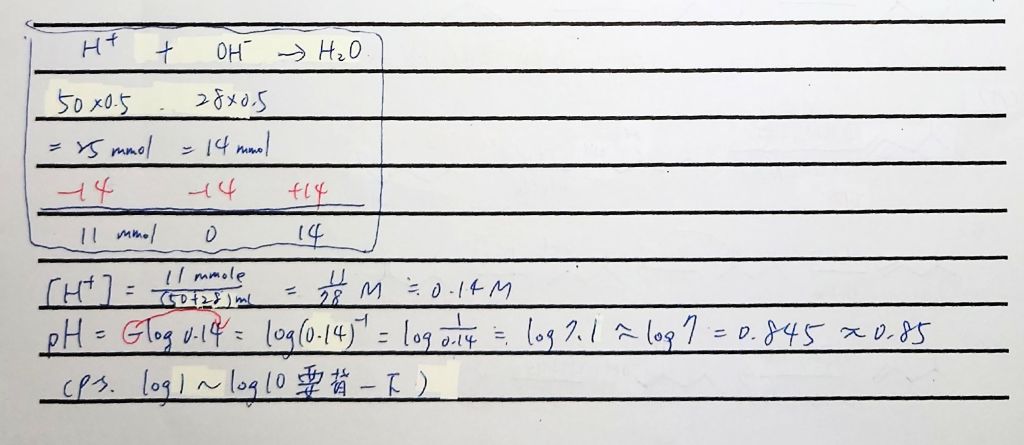 H⁺ + OH⁻ → H₂O
50×0.5 28×0.5
= 25 mmol = 14 mmol
-14 -14 +14
11 mmol 0 14
[H⁺] = 11 mmole / (50+28) ml = 11/78 M ≒ 0.14 M
pH = -log 0.14 = log(0.14)⁻¹ = log 1/0.14 ≒ log 7.1 ≈ log 7 = 0.845 ≈ 0.85
(ps. log1 ~ log10 要背一下)